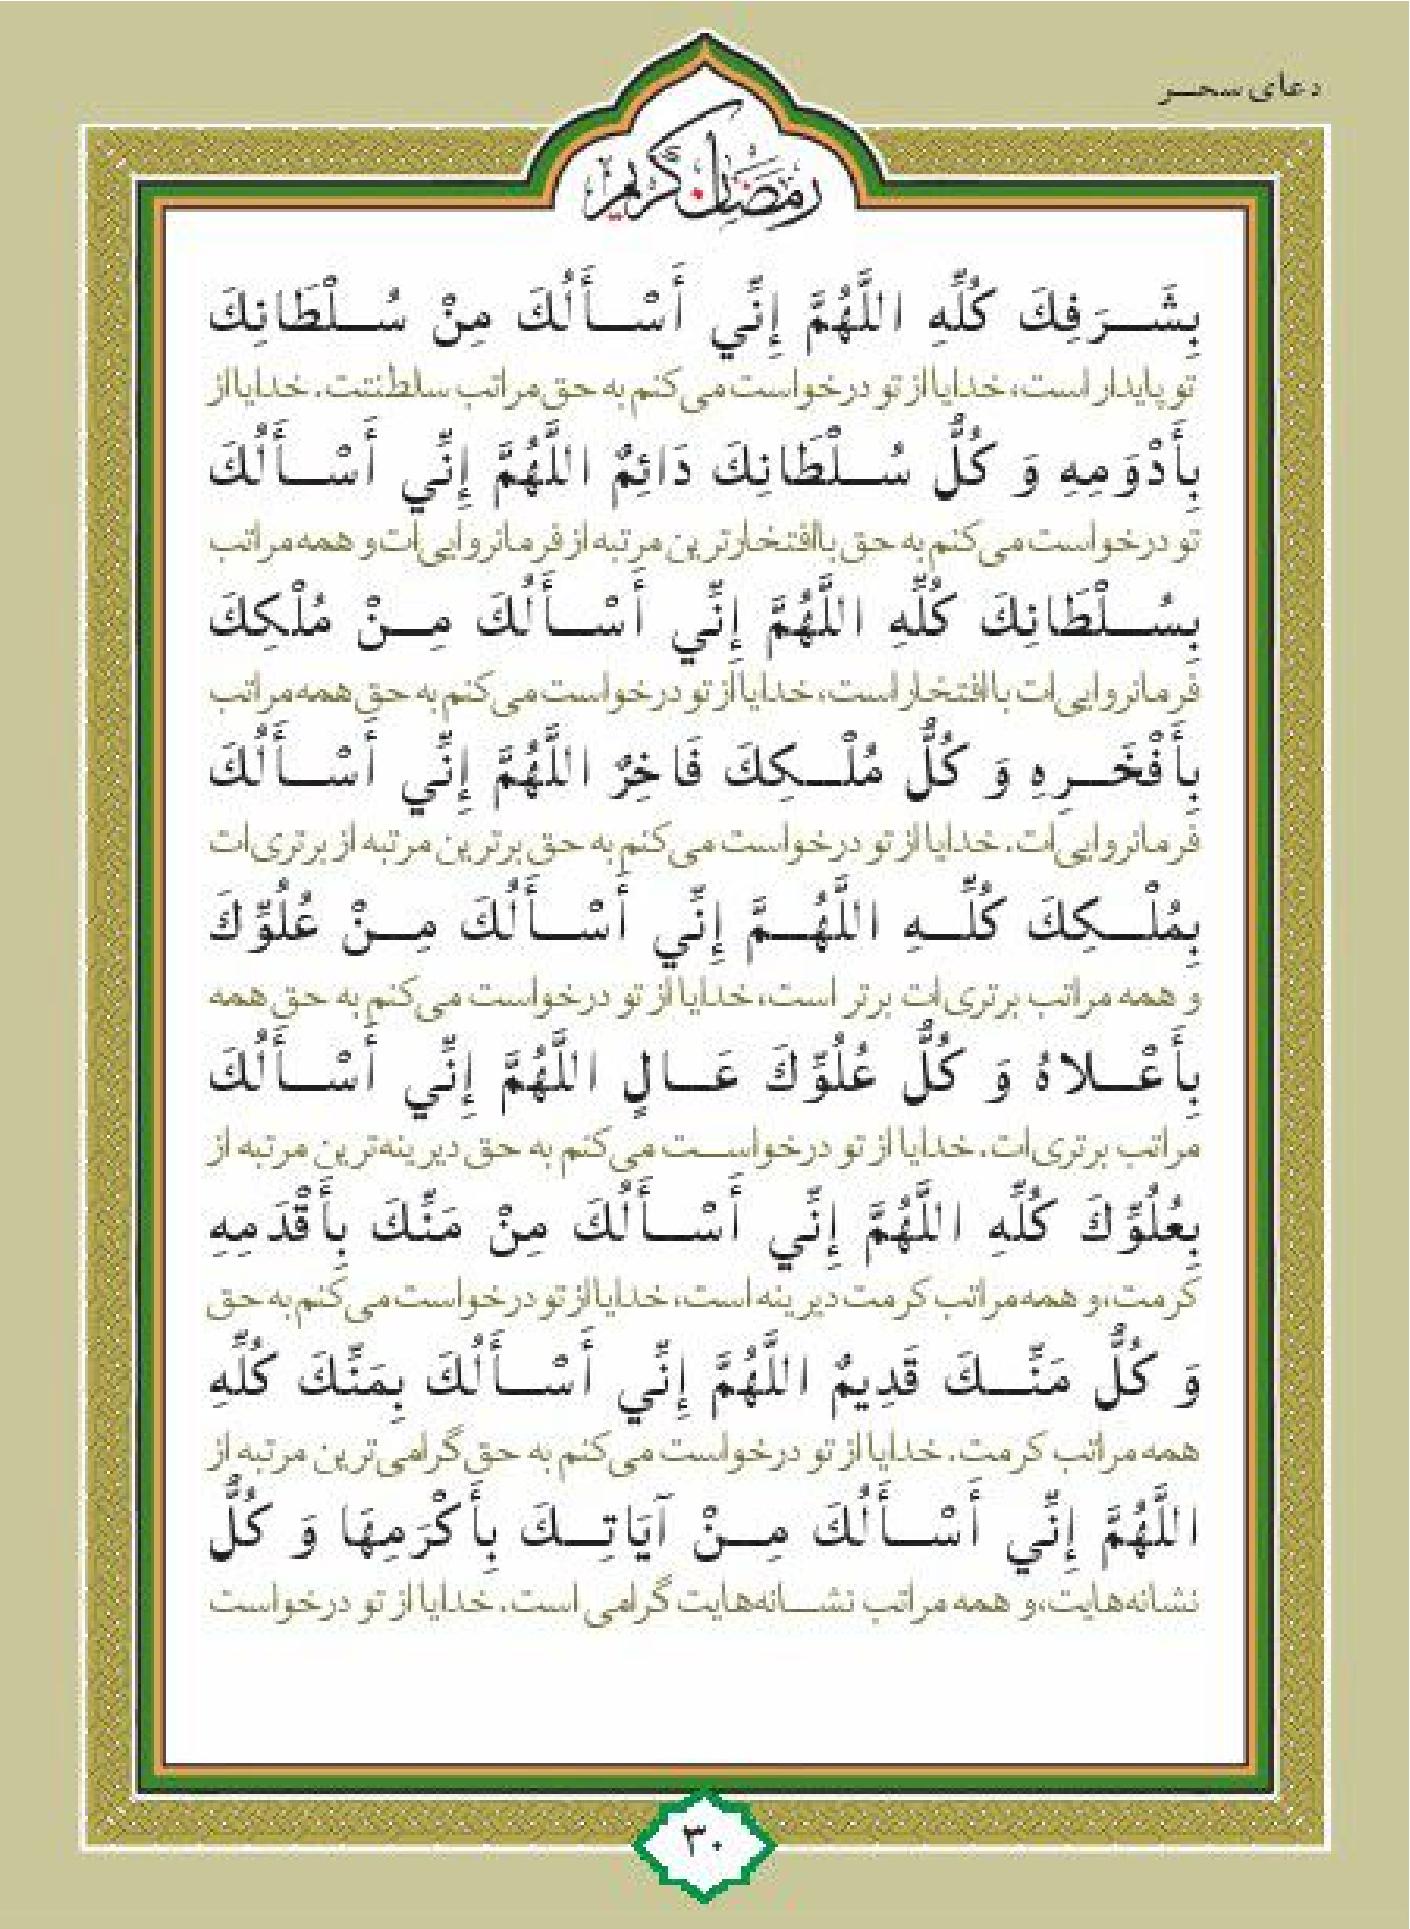 دعای سحـــر
رمضان کریم
بِشَـــرَفِكَ كُلِّهِ اللَّهُمَّ إِنِّي أَسْـــأَلُكَ مِنْ سُـــلْطَانِكَ
تو پایدار است، خدایا از تو درخواست می‌کنم به حق مراتب سلطنتت. خدایا از
بِأَدْوَمِهِ وَ كُلُّ سُـــلْطَانِكَ دَائِمٌ اللَّهُمَّ إِنِّي أَسْـــأَلُكَ
تو درخواست می‌کنم به حق باافتخارترین مرتبه از فرمانروایی‌ات و همه مراتب
بِسُـــلْطَانِكَ كُلِّهِ اللَّهُمَّ إِنِّي أَسْـــأَلُكَ مِـــنْ مُلْكِكَ
فرمانروایی‌ات باافتخار است، خدایا از تو درخواست می‌کنم به حق همه مراتب
بِأَفْخَـــرِهِ وَ كُلُّ مُلْـــكِكَ فَاخِرٌ اللَّهُمَّ إِنِّي أَسْـــأَلُكَ
فرمانروایی‌ات. خدایا از تو درخواست می‌کنم به حق برترین مرتبه از برتری‌ات
بِمُلْـــكِكَ كُلِّـــهِ اللَّهُـــمَّ إِنِّي أَسْـــأَلُكَ مِـــنْ عُلُوِّكَ
و همه مراتب برتری‌ات برتر است، خدایا از تو درخواست می‌کنم به حق همه
بِأَعْـــلاهُ وَ كُلُّ عُلُوِّكَ عَـــالٍ اللَّهُمَّ إِنِّي أَسْـــأَلُكَ
مراتب برتری‌ات. خدایا از تو درخواســـت می‌کنم به حق دیرینه‌ترین مرتبه از
بِعُلُوِّكَ كُلِّهِ اللَّهُمَّ إِنِّي أَسْـــأَلُكَ مِنْ مَنِّكَ بِأَقْدَمِهِ
کرمت، و همه مراتب کرمت دیرینه است، خدایا از تو درخواست می‌کنم به حق
وَ كُلُّ مَنِّـــكَ قَدِيمٌ اللَّهُمَّ إِنِّي أَسْـــأَلُكَ بِمَنِّكَ كُلِّهِ
همه مراتب کرمت. خدایا از تو درخواست می‌کنم به حق گرامی‌ترین مرتبه از
اللَّهُمَّ إِنِّي أَسْـــأَلُكَ مِـــنْ آيَاتِـــكَ بِأَكْرَمِهَا وَ كُلُّ
نشانه‌هایت، و همه مراتب نشـــانه‌هایت گرامی است. خدایا از تو درخواست
۳۰